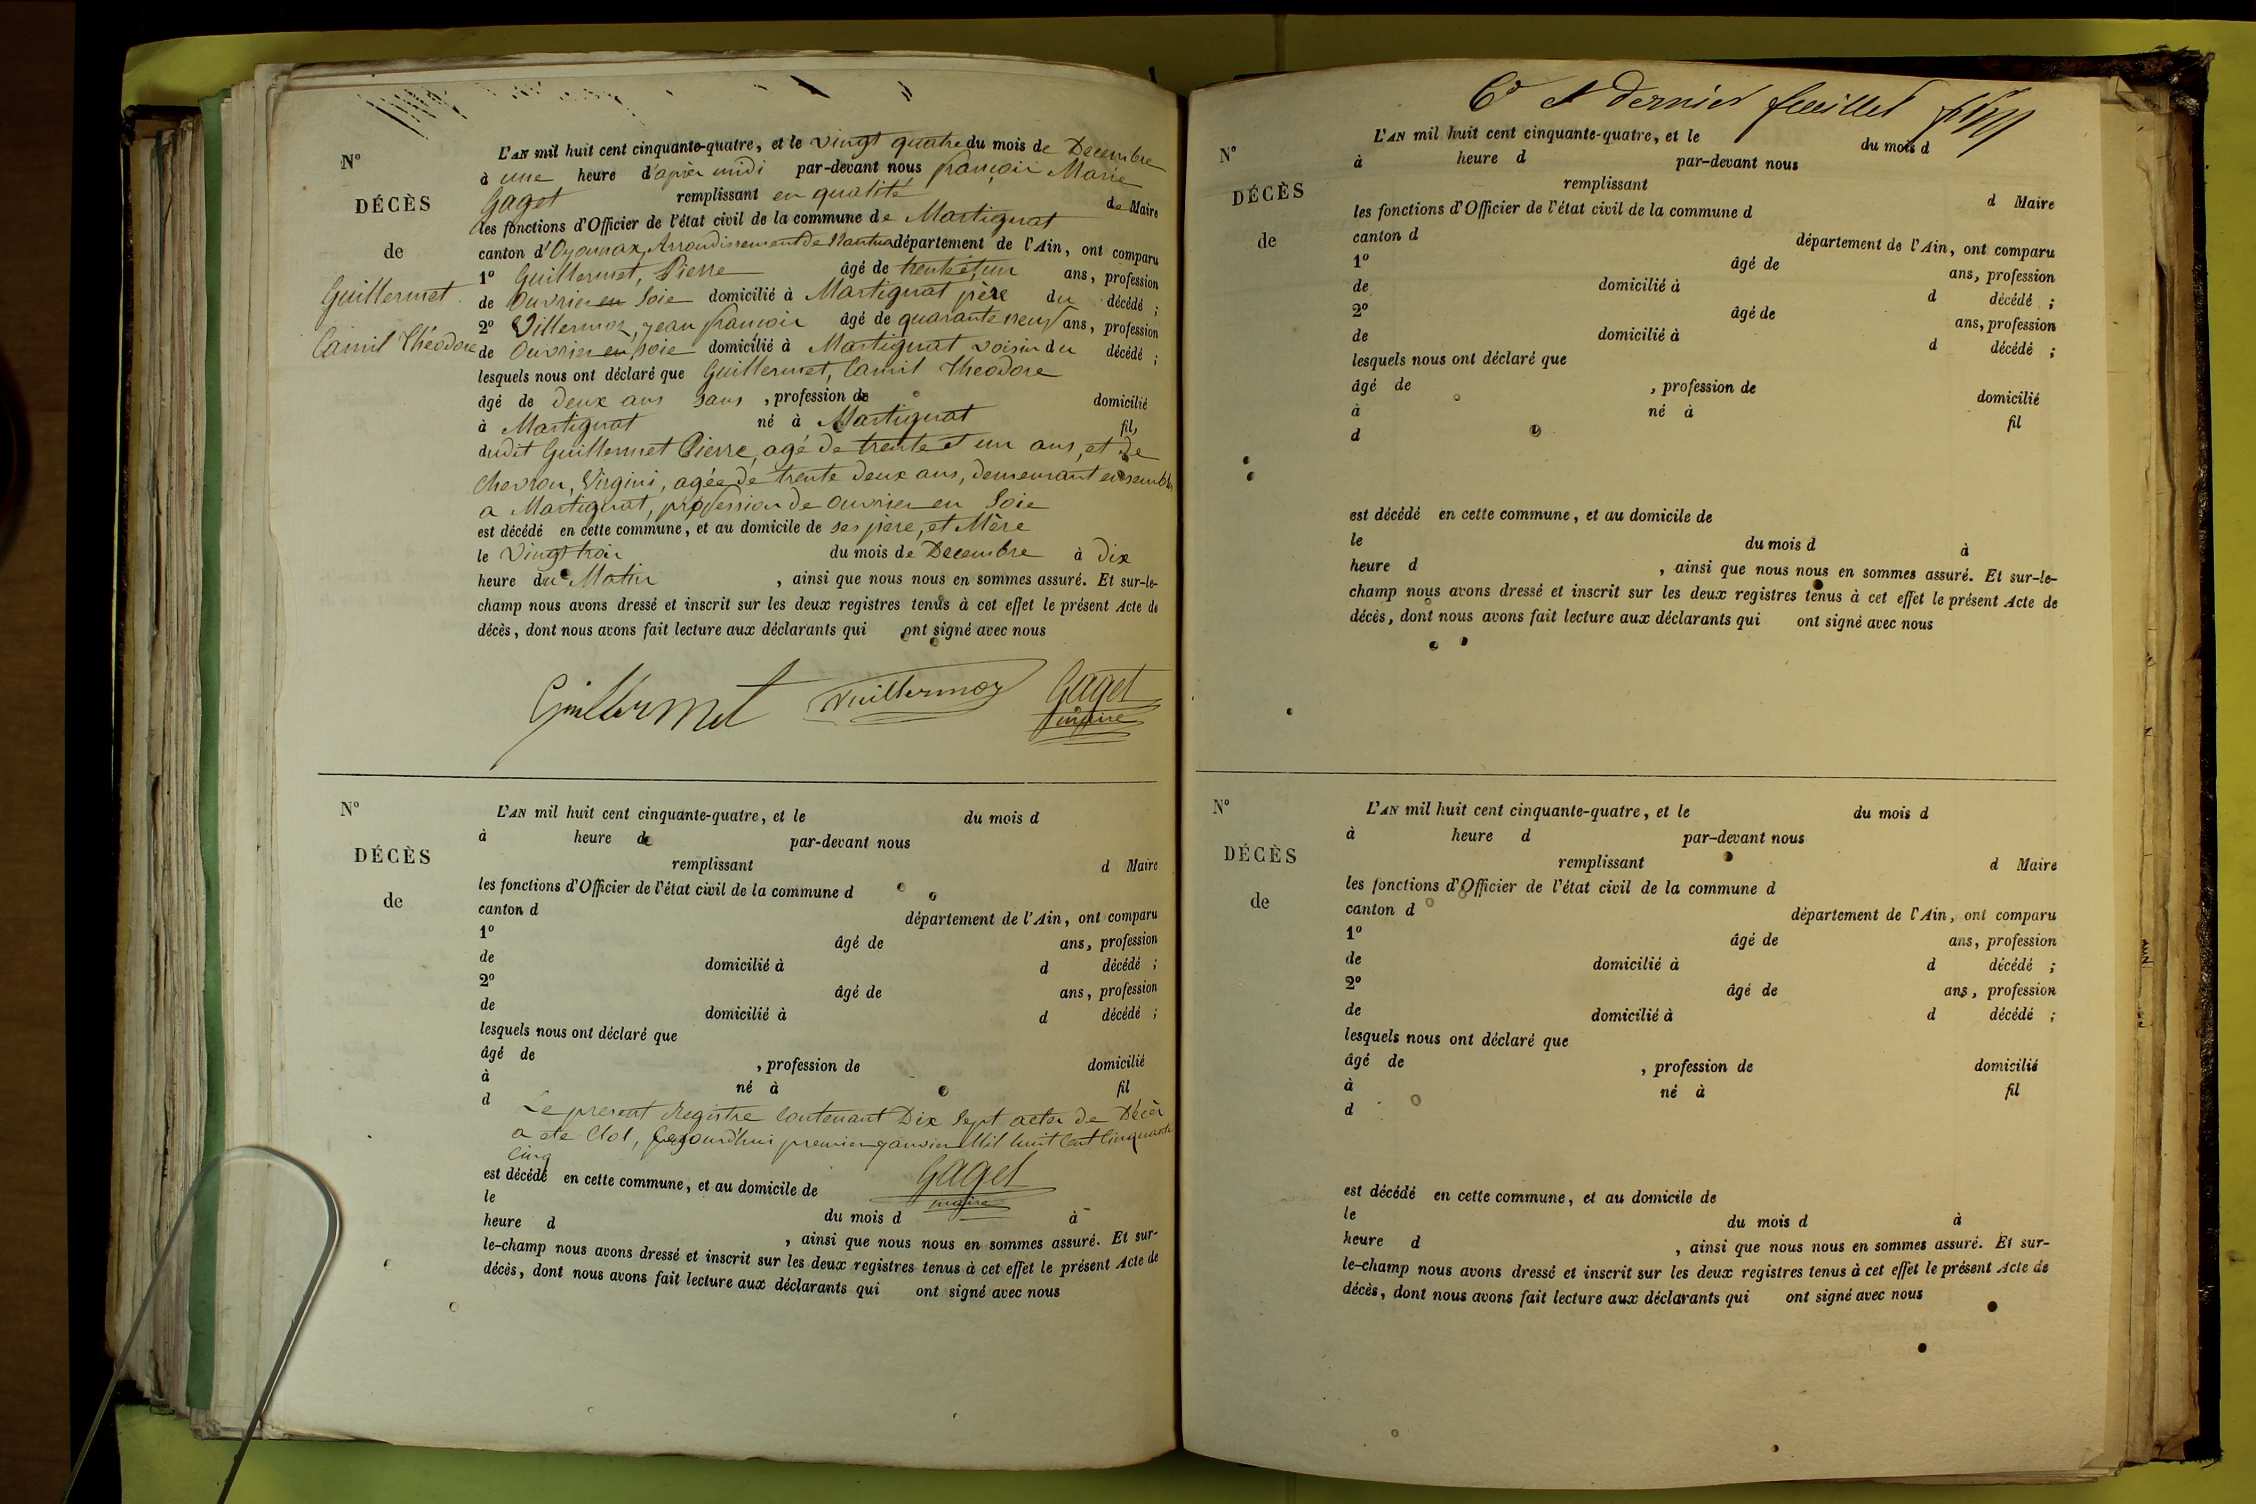 N°
DÉCÈS
de
Guillermet
Camil Théodore
L'AN mil huit cent cinquante-quatre, et le vingt quatre du mois de Decembre
à une heure d'après midi par-devant nous françois Marie
Gaget remplissant en qualité de Maire
les fonctions d'Officier de l'état civil de la commune de Martignat
canton d'Oyonnax, Arrondissement de Nantua département de l'Ain, ont comparu
1° Guillermet, Pierre âgé de trente et un ans, profession
de Ouvrier en Soie domicilié à Martignat père du décédé ;
2° Villermoz, jean françois âgé de quarante neuf ans, profession
de Ouvrier en soie domicilié à Martignat voisin du décédé ;
lesquels nous ont déclaré que Guillermet, Camil théodore
âgé de deux ans Sans , profession de domicilié
à Martignat né à Martignat fils
dudit Guillermet Pierre, agé de trente et un ans, et de
Chevron, Virgini, agée de trente deux ans, demeurant ensemble
a Martignat, profession de ouvrier en Soie
est décédé en cette commune, et au domicile de ses père, et Mère
le Vingt trois du mois de Decembre à Dix
heure du Matin , ainsi que nous nous en sommes assuré. Et sur-le-
champ nous avons dressé et inscrit sur les deux registres tenus à cet effet le présent Acte de
décès, dont nous avons fait lecture aux déclarants qui ont signé avec nous
Guillermet Vuillermoz Gaget
maire
N°
DÉCÈS
de
L'AN mil huit cent cinquante-quatre, et le du mois d
à heure de par-devant nous
remplissant d Maire
les fonctions d'Officier de l'état civil de la commune d
canton d département de l'Ain, ont comparu
1° âgé de ans, profession
de domicilié à d décédé ;
2° âgé de ans, profession
de domicilié à d décédé ;
lesquels nous ont déclaré que
âgé de , profession de domicilié
à né à fil
d
Le present Registre Contenant Dix Sept actes de Décès
a ete Clot, Cejourd'hui premier janvier Mil huit Cent Cinquante
Cinq
Gaget
maire
est décédé en cette commune, et au domicile de
le du mois d à
heure d , ainsi que nous nous en sommes assuré. Et sur-
le-champ nous avons dressé et inscrit sur les deux registres tenus à cet effet le présent Acte de
décès, dont nous avons fait lecture aux déclarants qui ont signé avec nous
6e et dernier feuillet
N°
DÉCÈS
de
L'AN mil huit cent cinquante-quatre, et le du mois d
à heure d par-devant nous
remplissant d Maire
les fonctions d'Officier de l'état civil de la commune d
canton d département de l'Ain, ont comparu
1° âgé de ans, profession
de domicilié à d décédé ;
2° âgé de ans, profession
de domicilié à d décédé ;
lesquels nous ont déclaré que
âgé de , profession de domicilié
à né à fil
d
est décédé en cette commune, et au domicile de
le du mois d à
heure d , ainsi que nous nous en sommes assuré. Et sur-le-
champ nous avons dressé et inscrit sur les deux registres tenus à cet effet le présent Acte de
décès, dont nous avons fait lecture aux déclarants qui ont signé avec nous
N°
DÉCÈS
de
L'AN mil huit cent cinquante-quatre, et le du mois d
à heure d par-devant nous
remplissant d Maire
les fonctions d'Officier de l'état civil de la commune d
canton d département de l'Ain, ont comparu
1° âgé de ans, profession
de domicilié à d décédé ;
2° âgé de ans, profession
de domicilié à d décédé ;
lesquels nous ont déclaré que
âgé de , profession de domicilié
à né à fil
d
est décédé en cette commune, et au domicile de
le du mois d à
heure d , ainsi que nous nous en sommes assuré. Et sur-
le-champ nous avons dressé et inscrit sur les deux registres tenus à cet effet le présent Acte de
décès, dont nous avons fait lecture aux déclarants qui ont signé avec nous